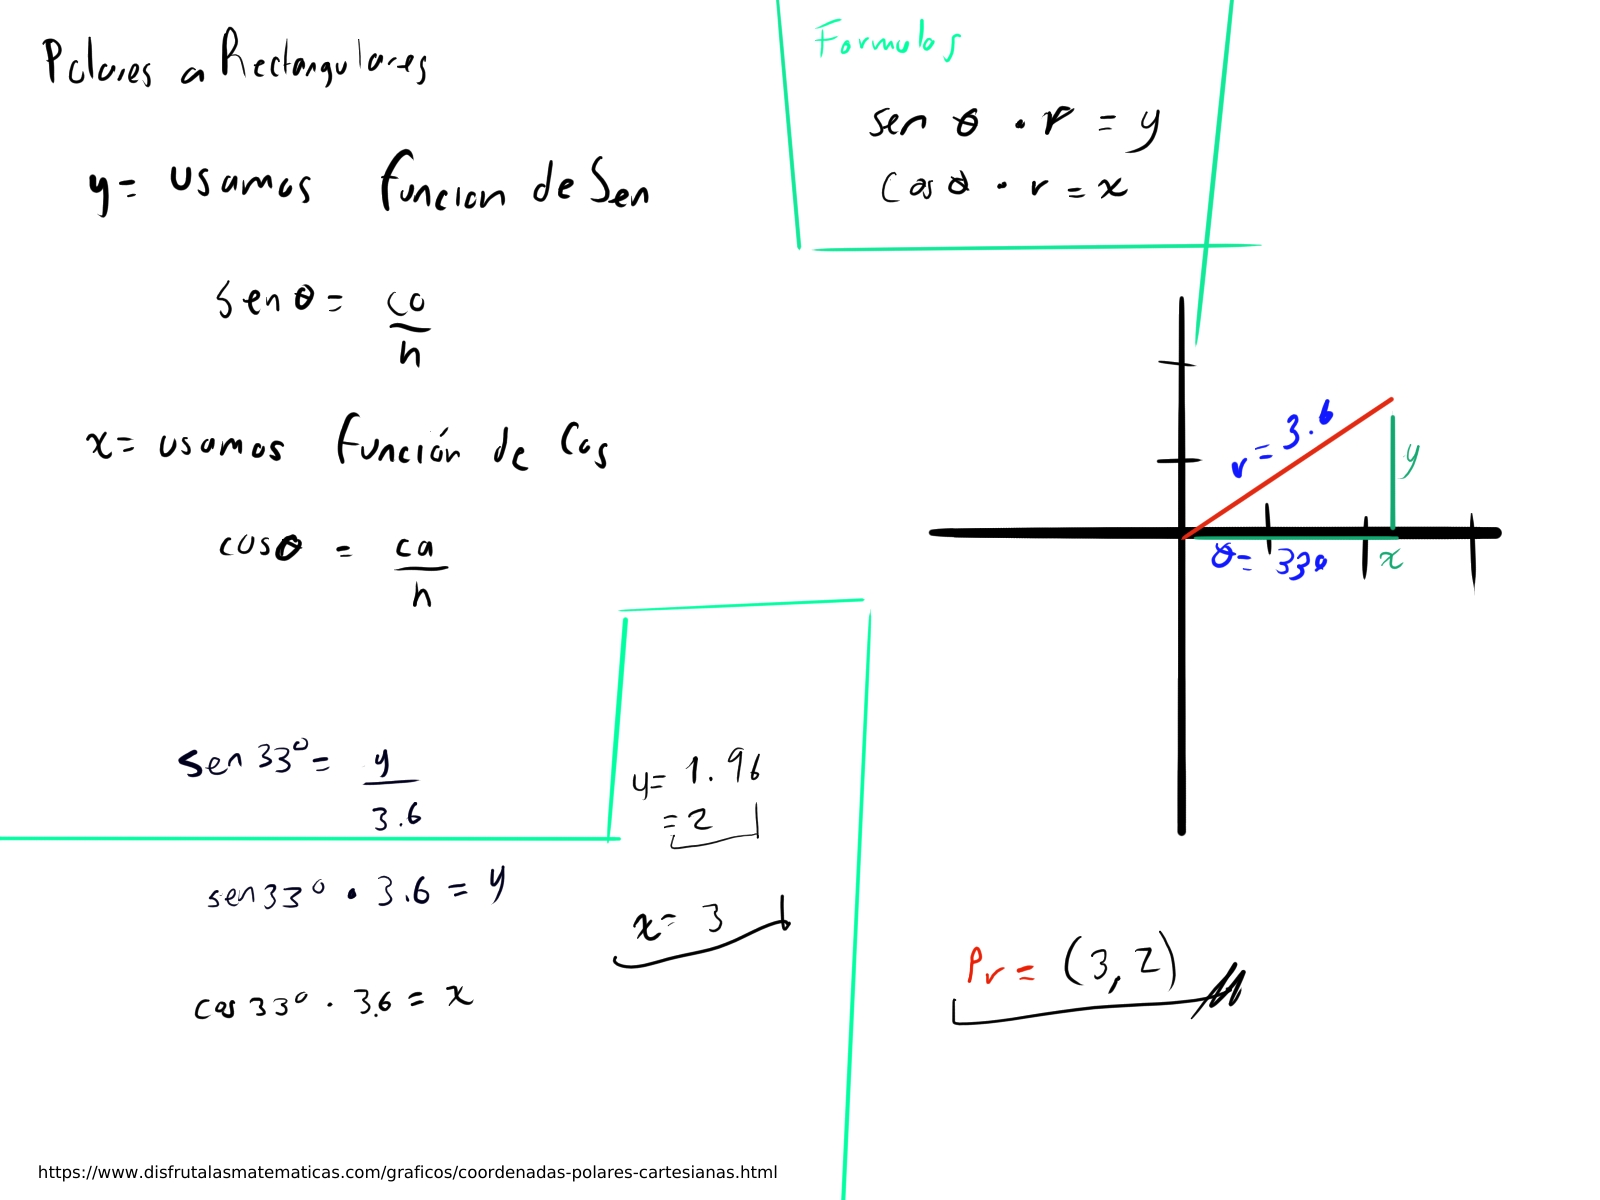 Polares a Rectangulares
y= usamos funcion de Sen
Sen θ = co
h
x= usamos función de Cos
cosθ = ca
h
Sen 33° = y
3.6
sen 33° • 3.6 = y
cos 33° · 3.6 = x
y= 1.96
=2
x= 3
Formulas
sen θ • r = y
Cos θ • r = x
r = 3.6
y
θ= 33°
x
Pr = (3,2)
https://www.disfrutalasmatematicas.com/graficos/coordenadas-polares-cartesianas.html